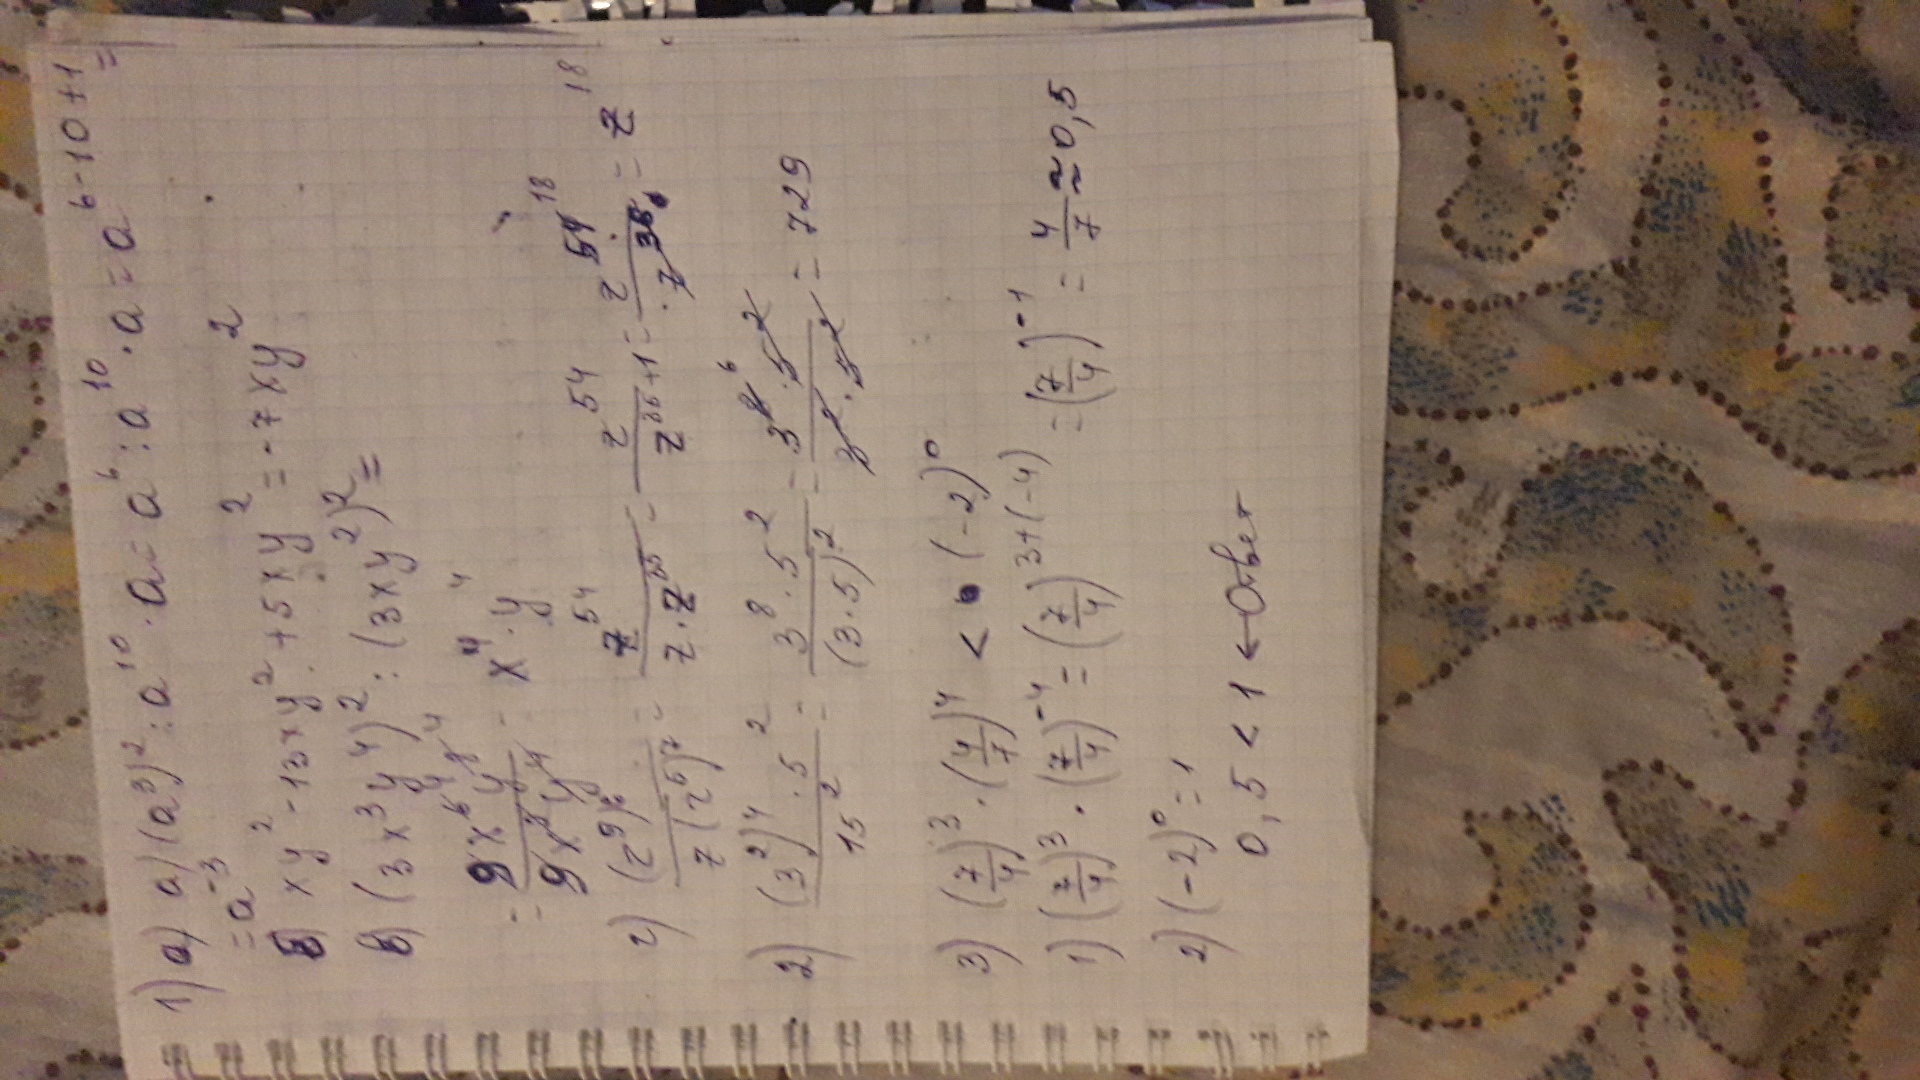 1) а) (a³)² : a¹⁰ · a = a⁶ : a¹⁰ · a = a⁶⁻¹⁰⁺¹ =
= a⁻³
xy² - 13xy² + 5xy² = -7xy²
в) (3x³y⁴)² : (3xy²)² =
= 9x⁶y⁸ / 9x²y⁴ = x⁴ · y⁴
г) (z⁹)⁶ / z(z⁵)⁷ = z⁵⁴ / z · z³⁵ = z⁵⁴ / z³⁵⁺¹ = z⁵⁴ / z³⁶ = z¹⁸
2) (3²)⁴ · 5² / 15² = 3⁸ · 5² / (3 · 5)² = 3⁸ · 5² / 3² · 5² = 729
3) (7/4)³ · (4/7)⁴ < (-2)⁰
1) (7/4)³ · (7/4)⁻⁴ = (7/4)³⁺⁽⁻⁴⁾ = (7/4)⁻¹ = 4/7 ≈ 0,5
2) (-2)⁰ = 1
0,5 < 1 ← Ответ